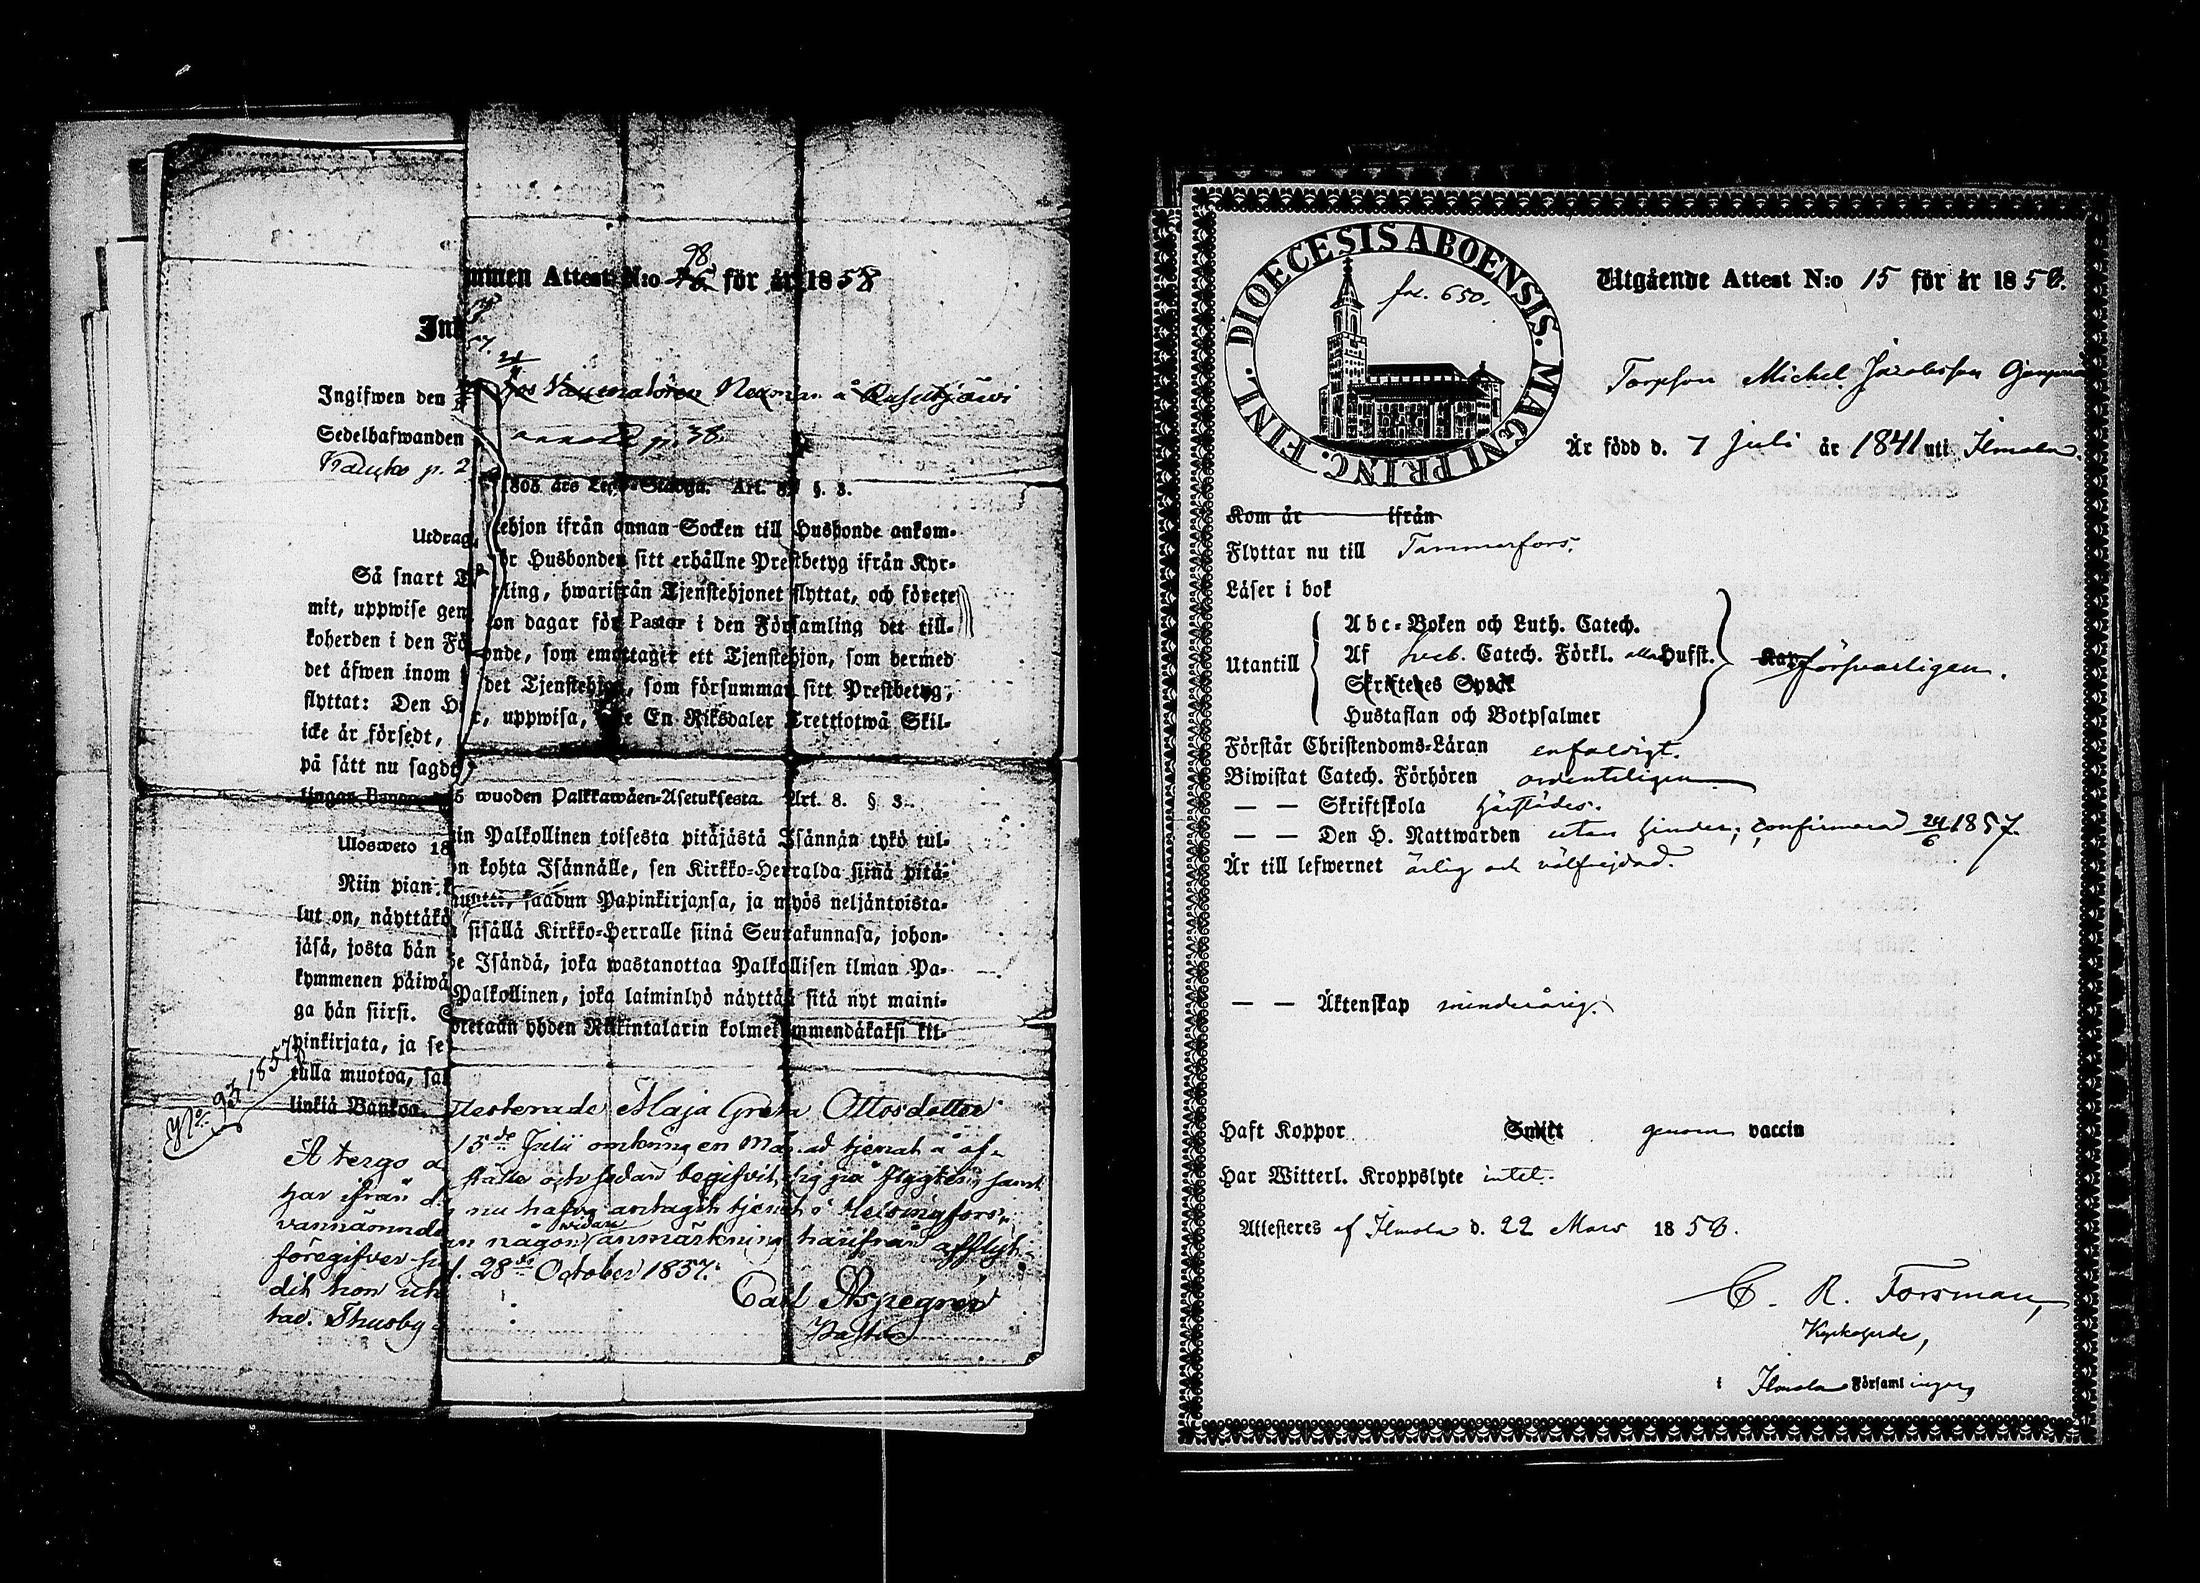 mmen Attest N:o 98 för år 1858
Ink
Ingifwen den
Sedelhafwanden
p. 38.
1805 års Lego-Stadga. Art. 8. §. 3.
Utdrag
ehjon ifrån annan Socken till Husbonde ankom-
Så snart
ör Husbonden sitt erhållne Prestbetyg ifrån Kyr-
mit, uppwise gen
ling, hwarifrån Tjenstehjonet flyttat, och förete
koherden i den Fö
ton dagar för Pastor i den Församling det till-
det äfwen inom
onde, som emottager ett Tjenstehjon, som dermed
flyttat: Den H
det Tjenstehjon, som försummar sitt Prestbetyg,
icke är försedt,
r, uppwisa, En Riksdaler Trettiotwå Skil-
på sätt nu sagdt
5 wuoden Palkkawäen-Asetuksesta. Art. 8. § 3.
Ulosweto 18
in Palkollinen toisesta pitäjästä Isännän tykö tul-
Niin pian
n kohta Isännälle, sen Kirkko-Herralda siinä pitä-
lut on, näyttäkö
muutti, saadun Papinkirjansa, ja myös neljäntoista-
jäsä, josta hän
sisällä Kirkko-Herralle siinä Seurakunnasa, johon-
kymmenen päiwä
Isändä, joka wastanottaa Palkollisen ilman Pa-
ga hän siirsi.
Palkollinen, joka laiminlyö näyttää sitä nyt maini-
pinkirjata, ja se
wetaan yhden Riikintalarin kolmekymmendäkaksi kil-
tulla muotoa, sa
linkiä Bankoa.
No. 93 1857
A tergo a
testerade Maja Greta Ottosdotter
har ifrån d
15de Julii omkring en månad tjenat å
ställe och sedan begifvit sig på flygten, samt
föregifver
nu hafva antagit tjenst i Helsingfors,
dit hon
någon vidare anmärkning härifrån afflyt-
tad. Thusby
d. 28de October 1857.
Carl Aspegren
Pastor
DIOECESIS ABOENSIS. MAGNI PRINC. FINL.
fol. 650.
Utgående Attest N:o 15 för år 1858.
Torpson Michel Jacobsson
Är född d. 7 Juli år 1841 uti Ilmola.
Kom år ifrån
Flyttar nu till Tammerfors.
Läser i bok
Utantill
Abc-Boken och Luth. Catech.
Af Sveb. Catech. Förkl. alla Hufst.
Skriftenes Språk
Hustaflan och Botpsalmer
försvarligen.
Förstår Christendoms-Läran enfaldigt.
Biwistat Catech. Förhören ordenteligen
— — Skriftskola härstädes.
— — Den H. Nattwarden utan hinder; confirmerad 24/6 1857.
Är till lefwernet ärlig och välfrejdad.
— — Äktenskap minderårig.
Haft Koppor Smitt genom vaccin
Har Witterl. Kroppslyte intet.
Attesteres af Ilmola d. 22 Mars 1858.
C. R. Forsman,
Kyrkoherde,
i Ilmola Församlingar